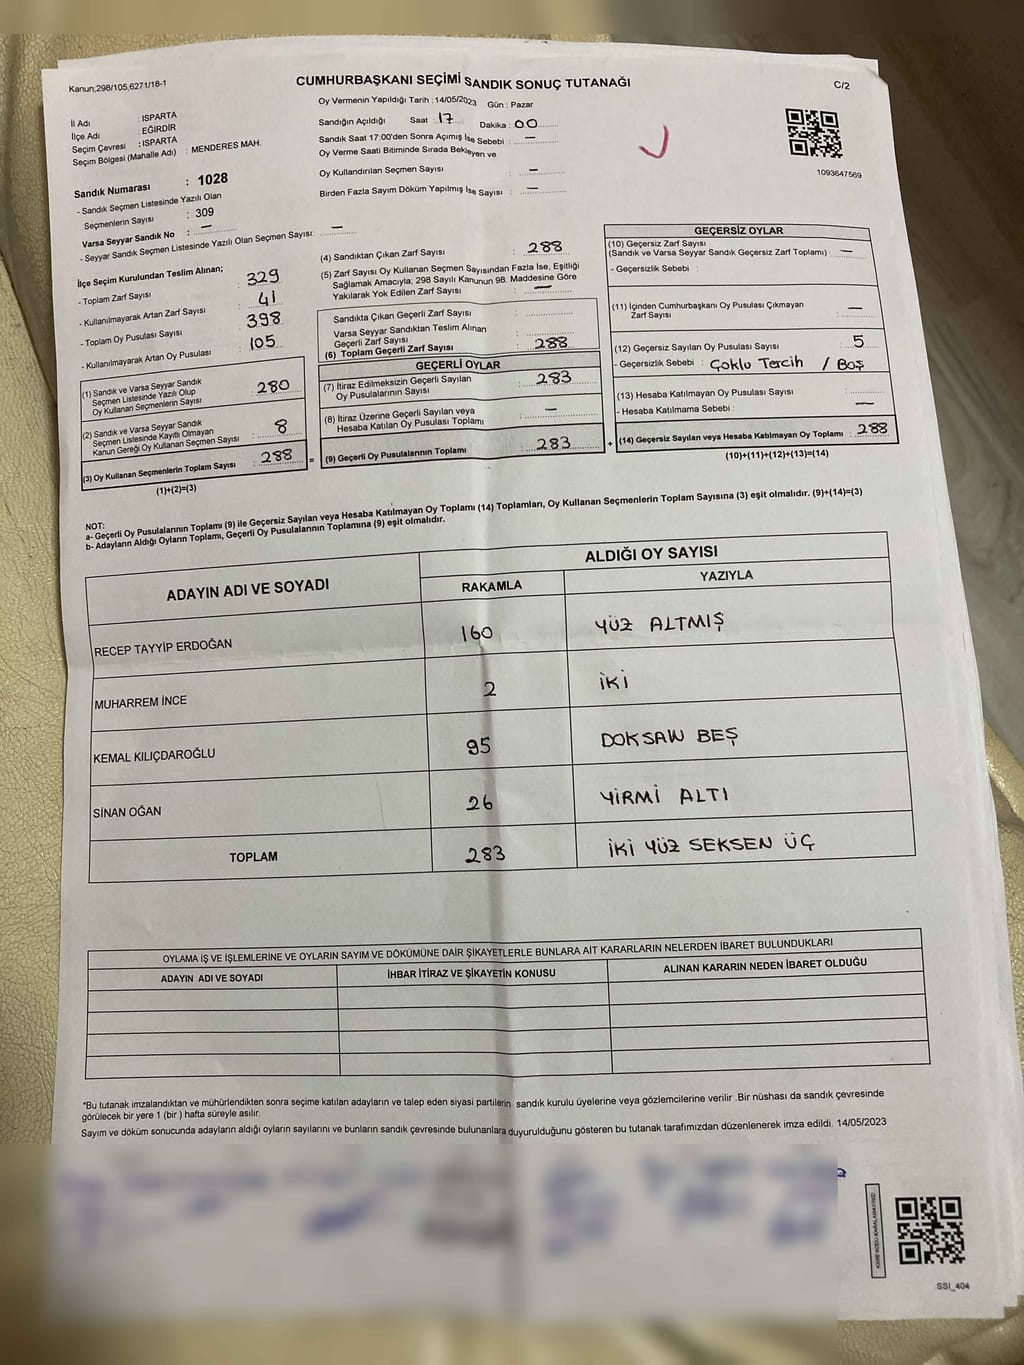 Kanun,298/105,6271/18-1
CUMHURBAŞKANI SEÇİMİ SANDIK SONUÇ TUTANAĞI
C/2
İl Adı : ISPARTA
İlçe Adı : EĞİRDİR
Seçim Çevresi : ISPARTA
Seçim Bölgesi (Mahalle Adı) : MENDERES MAH.
Oy Vermenin Yapıldığı Tarih :14/05/2023 Gün : Pazar
Sandığın Açıldığı Saat : 17 Dakika : 00
Sandık Saat 17:00'den Sonra Açımış İse Sebebi : —
Oy Verme Saati Bitiminde Sırada Bekleyen ve
Oy Kullandırılan Seçmen Sayısı : —
Birden Fazla Sayım Döküm Yapılmış İse Sayısı : —
1093647569
Sandık Numarası : 1028
- Sandık Seçmen Listesinde Yazılı Olan
Seçmenlerin Sayısı : 309
Varsa Seyyar Sandık No : —
- Seyyar Sandık Seçmen Listesinde Yazılı Olan Seçmen Sayısı: —
İlçe Seçim Kurulundan Teslim Alınan;
- Toplam Zarf Sayısı : 329
- Kullanılmayarak Artan Zarf Sayısı : 41
- Toplam Oy Pusulası Sayısı : 398
- Kullanılmayarak Artan Oy Pusulası : 105
(1) Sandık ve Varsa Seyyar Sandık
Seçmen Listesinde Yazılı Olup
Oy Kullanan Seçmenlerin Sayısı : 280
(2) Sandık ve Varsa Seyyar Sandık
Seçmen Listesinde Kayıtlı Olmayan
Kanun Gereği Oy Kullanan Seçmen Sayısı : 8
(3) Oy Kullanan Seçmenlerin Toplam Sayısı : 288
(1)+(2)=(3)
=
(4) Sandıktan Çıkan Zarf Sayısı : 288
(5) Zarf Sayısı Oy Kullanan Seçmen Sayısından Fazla İse, Eşitliği
Sağlamak Amacıyla, 298 Sayılı Kanunun 98. Maddesine Göre
Yakılarak Yok Edilen Zarf Sayısı : —
Sandıkta Çıkan Geçerli Zarf Sayısı :
Varsa Seyyar Sandıktan Teslim Alınan
Geçerli Zarf Sayısı :
(6) Toplam Geçerli Zarf Sayısı : 288
GEÇERLİ OYLAR
(7) İtiraz Edilmeksizin Geçerli Sayılan
Oy Pusulalarının Sayısı : 283
(8) İtiraz Üzerine Geçerli Sayılan veya
Hesaba Katılan Oy Pusulası Toplamı : —
(9) Geçerli Oy Pusulalarının Toplamı : 283
+
GEÇERSİZ OYLAR
(10) Geçersiz Zarf Sayısı
(Sandık ve Varsa Seyyar Sandık Geçersiz Zarf Toplamı) : —
- Geçersizlik Sebebi :
(11) İçinden Cumhurbaşkanı Oy Pusulası Çıkmayan
Zarf Sayısı : —
(12) Geçersiz Sayılan Oy Pusulası Sayısı : 5
- Geçersizlik Sebebi : Çoklu Tercih / Boş
(13) Hesaba Katılmayan Oy Sayısı :
- Hesaba Katılmama Sebebi : —
(14) Geçersiz Sayılan veya Hesaba Katılmayan Oy Toplamı : 288
(10)+(11)+(12)+(13)=(14)
NOT:
a- Geçerli Oy Pusulalarının Toplamı (9) ile Geçersiz Sayılan veya Hesaba Katılmayan Oy Toplamı (14) Toplamları, Oy Kullanan Seçmenlerin Toplam Sayısına (3) eşit olmalıdır. (9)+(14)=(3)
b- Adayların Aldığı Oyların Toplamı, Geçerli Oy Pusulalarının Toplamına (9) eşit olmalıdır.
ADAYIN ADI VE SOYADI
ALDIĞI OY SAYISI
RAKAMLA YAZIYLA
RECEP TAYYİP ERDOĞAN 160 YÜZ ALTMIŞ
MUHARREM İNCE 2 İKİ
KEMAL KILIÇDAROĞLU 95 DOKSAN BEŞ
SİNAN OĞAN 26 YİRMİ ALTI
TOPLAM 283 İKİ YÜZ SEKSEN ÜÇ
OYLAMA İŞ VE İŞLEMLERİNE VE OYLARIN SAYIM VE DÖKÜMÜNE DAİR ŞİKAYETLERLE BUNLARA AİT KARARLARIN NELERDEN İBARET BULUNDUKLARI
ADAYIN ADI VE SOYADI İHBAR İTİRAZ VE ŞİKAYETİN KONUSU ALINAN KARARIN NEDEN İBARET OLDUĞU
*Bu tutanak imzalandıktan ve mühürlendikten sonra seçime katılan adayların ve talep eden siyasi partilerin sandık kurulu üyelerine veya gözlemcilerine verilir .Bir nüshası da sandık çevresinde
görülecek bir yere 1 (bir ) hafta süreyle asılır.
Sayım ve döküm sonucunda adayların aldığı oyların sayılarını ve bunların sandık çevresinde bulunanlara duyurulduğunu gösteren bu tutanak tarafımızdan düzenlenerek imza edildi. 14/05/2023
KARE KODU KARALAMAYINIZ!
SSI_404